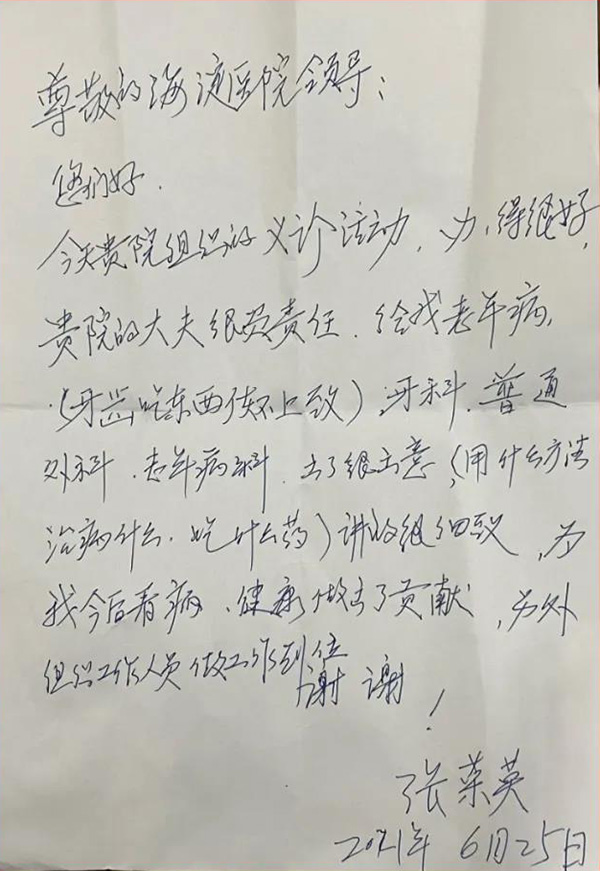 尊敬的海淀医院领导：
您们好.
今天贵院组织的义诊活动，办得很好，
贵院的大夫很负责任.给我老年病，
（牙齿吃东西使不上劲）牙科.普通
外科.老年病科.出了很主意（用什么方法
治病什么.吃什么药）讲的很细致，为
我今后看病.健康做出了贡献，另外
组织工作人员做工作到位
谢谢！
张荣英
2021年6月25日